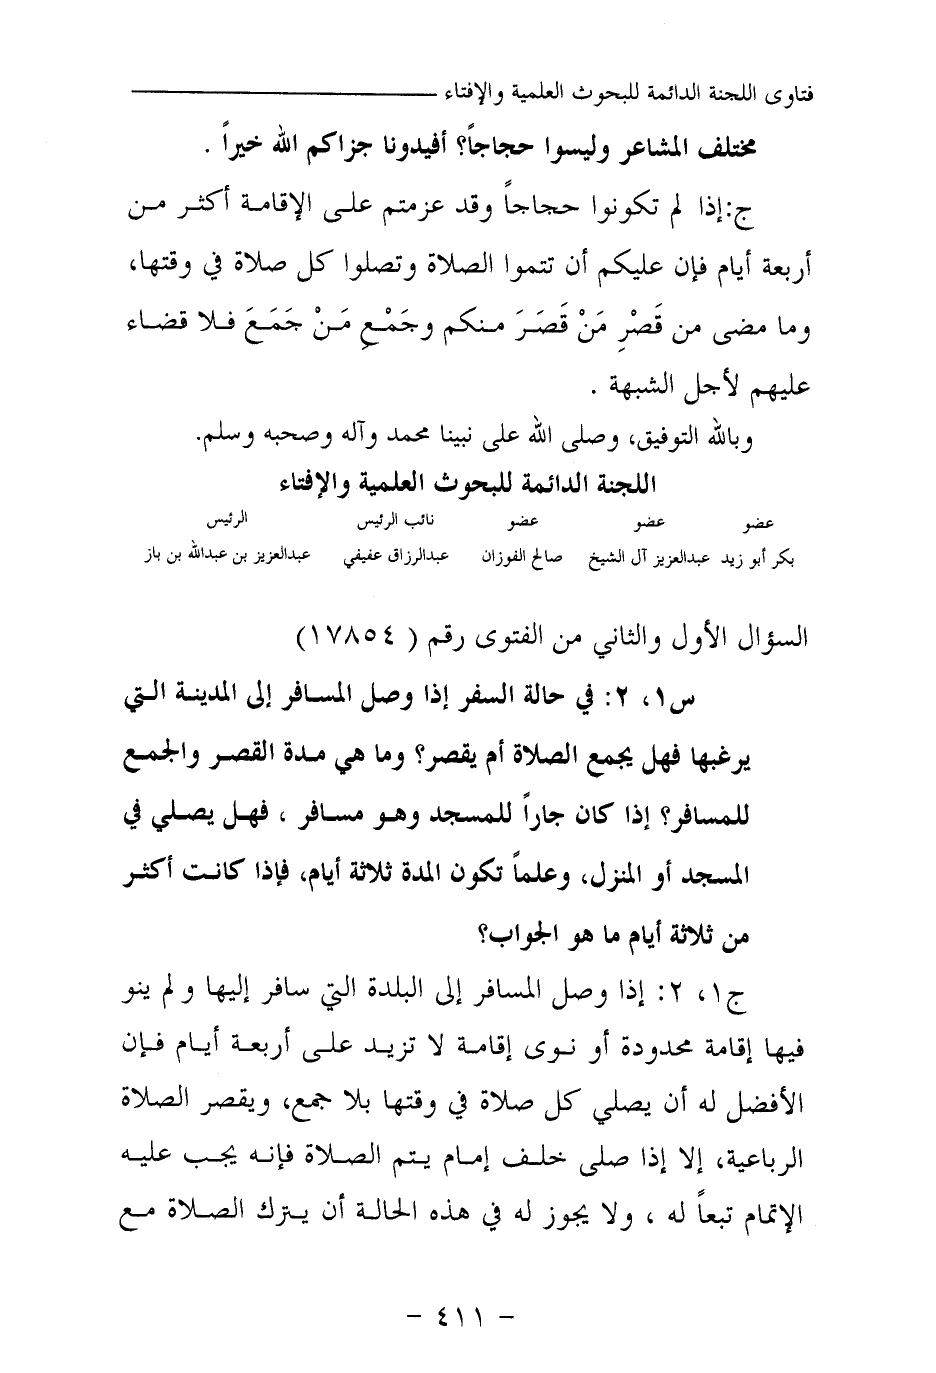 فتاوى اللجنة الدائمة للبحوث العلمية والإفتاء
مختلف المشاعر وليسوا حجاجاً؟ أفيدونا جزاكم الله خيراً .
ج:إذا لم تكونوا حجاجاً وقد عزمتم على الإقامة أكثر من
أربعة أيام فإن عليكم أن تتموا الصلاة وتصلوا كل صلاة في وقتها،
وما مضى من قَصْرِ مَنْ قَصَرَ منكم وجَمْعِ مَنْ جَمَعَ فلا قضاء
عليهم لأجل الشبهة .
وبالله التوفيق، وصلى الله على نبينا محمد وآله وصحبه وسلم.
اللجنة الدائمة للبحوث العلمية والإفتاء
عضو عضو عضو نائب الرئيس الرئيس
بكر أبو زيد عبدالعزيز آل الشيخ صالح الفوزان عبدالرزاق عفيفي عبدالعزيز بن عبدالله بن باز
السؤال الأول والثاني من الفتوى رقم ( ١٧٨٥٤)
س١، ٢: في حالة السفر إذا وصل المسافر إلى المدينة التي
يرغبها فهل يجمع الصلاة أم يقصر؟ وما هي مدة القصر والجمع
للمسافر؟ إذا كان جاراً للمسجد وهو مسافر ، فهل يصلي في
المسجد أو المنزل، وعلماً تكون المدة ثلاثة أيام، فإذا كانت أكثر
من ثلاثة أيام ما هو الجواب؟
ج١، ٢: إذا وصل المسافر إلى البلدة التي سافر إليها ولم ينو
فيها إقامة محدودة أو نوى إقامة لا تزيد على أربعة أيام فإن
الأفضل له أن يصلي كل صلاة في وقتها بلا جمع، ويقصر الصلاة
الرباعية، إلا إذا صلى خلف إمام يتم الصلاة فإنه يجب عليه
الإتمام تبعاً له ، ولا يجوز له في هذه الحالة أن يترك الصلاة مع
- ٤١١ -